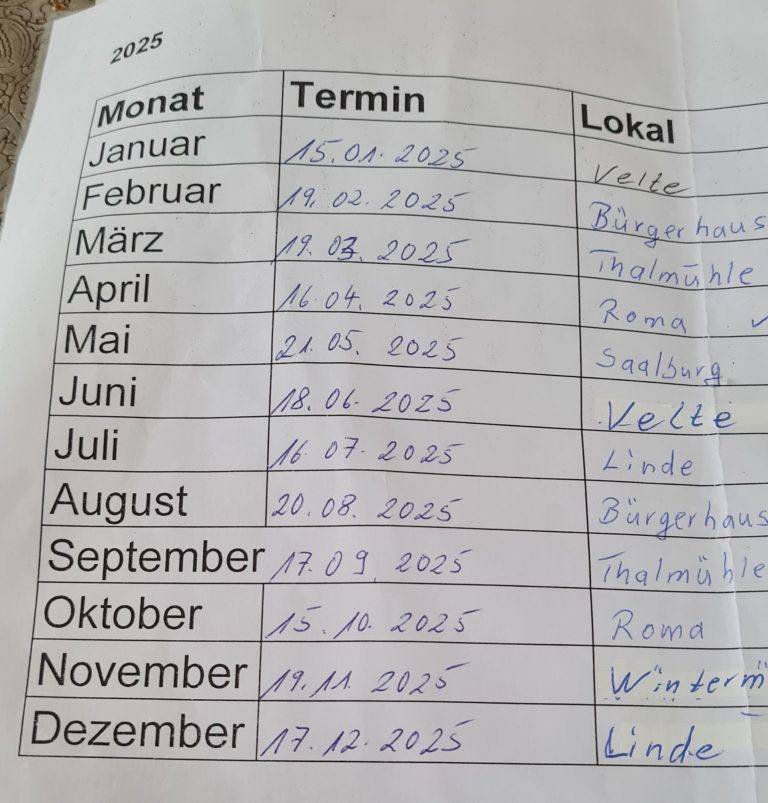 2025
Monat Termin Lokal
Januar 15.01.2025 Velte
Februar 19.02.2025 Bürgerhaus
März 19.03.2025 Thalmühle
April 16.04.2025 Roma
Mai 21.05.2025 Saalburg
Juni 18.06.2025 Velte
Juli 16.07.2025 Linde
August 20.08.2025 Bürgerhaus
September 17.09.2025 Thalmühle
Oktober 15.10.2025 Roma
November 19.11.2025
Dezember 17.12.2025 Linde